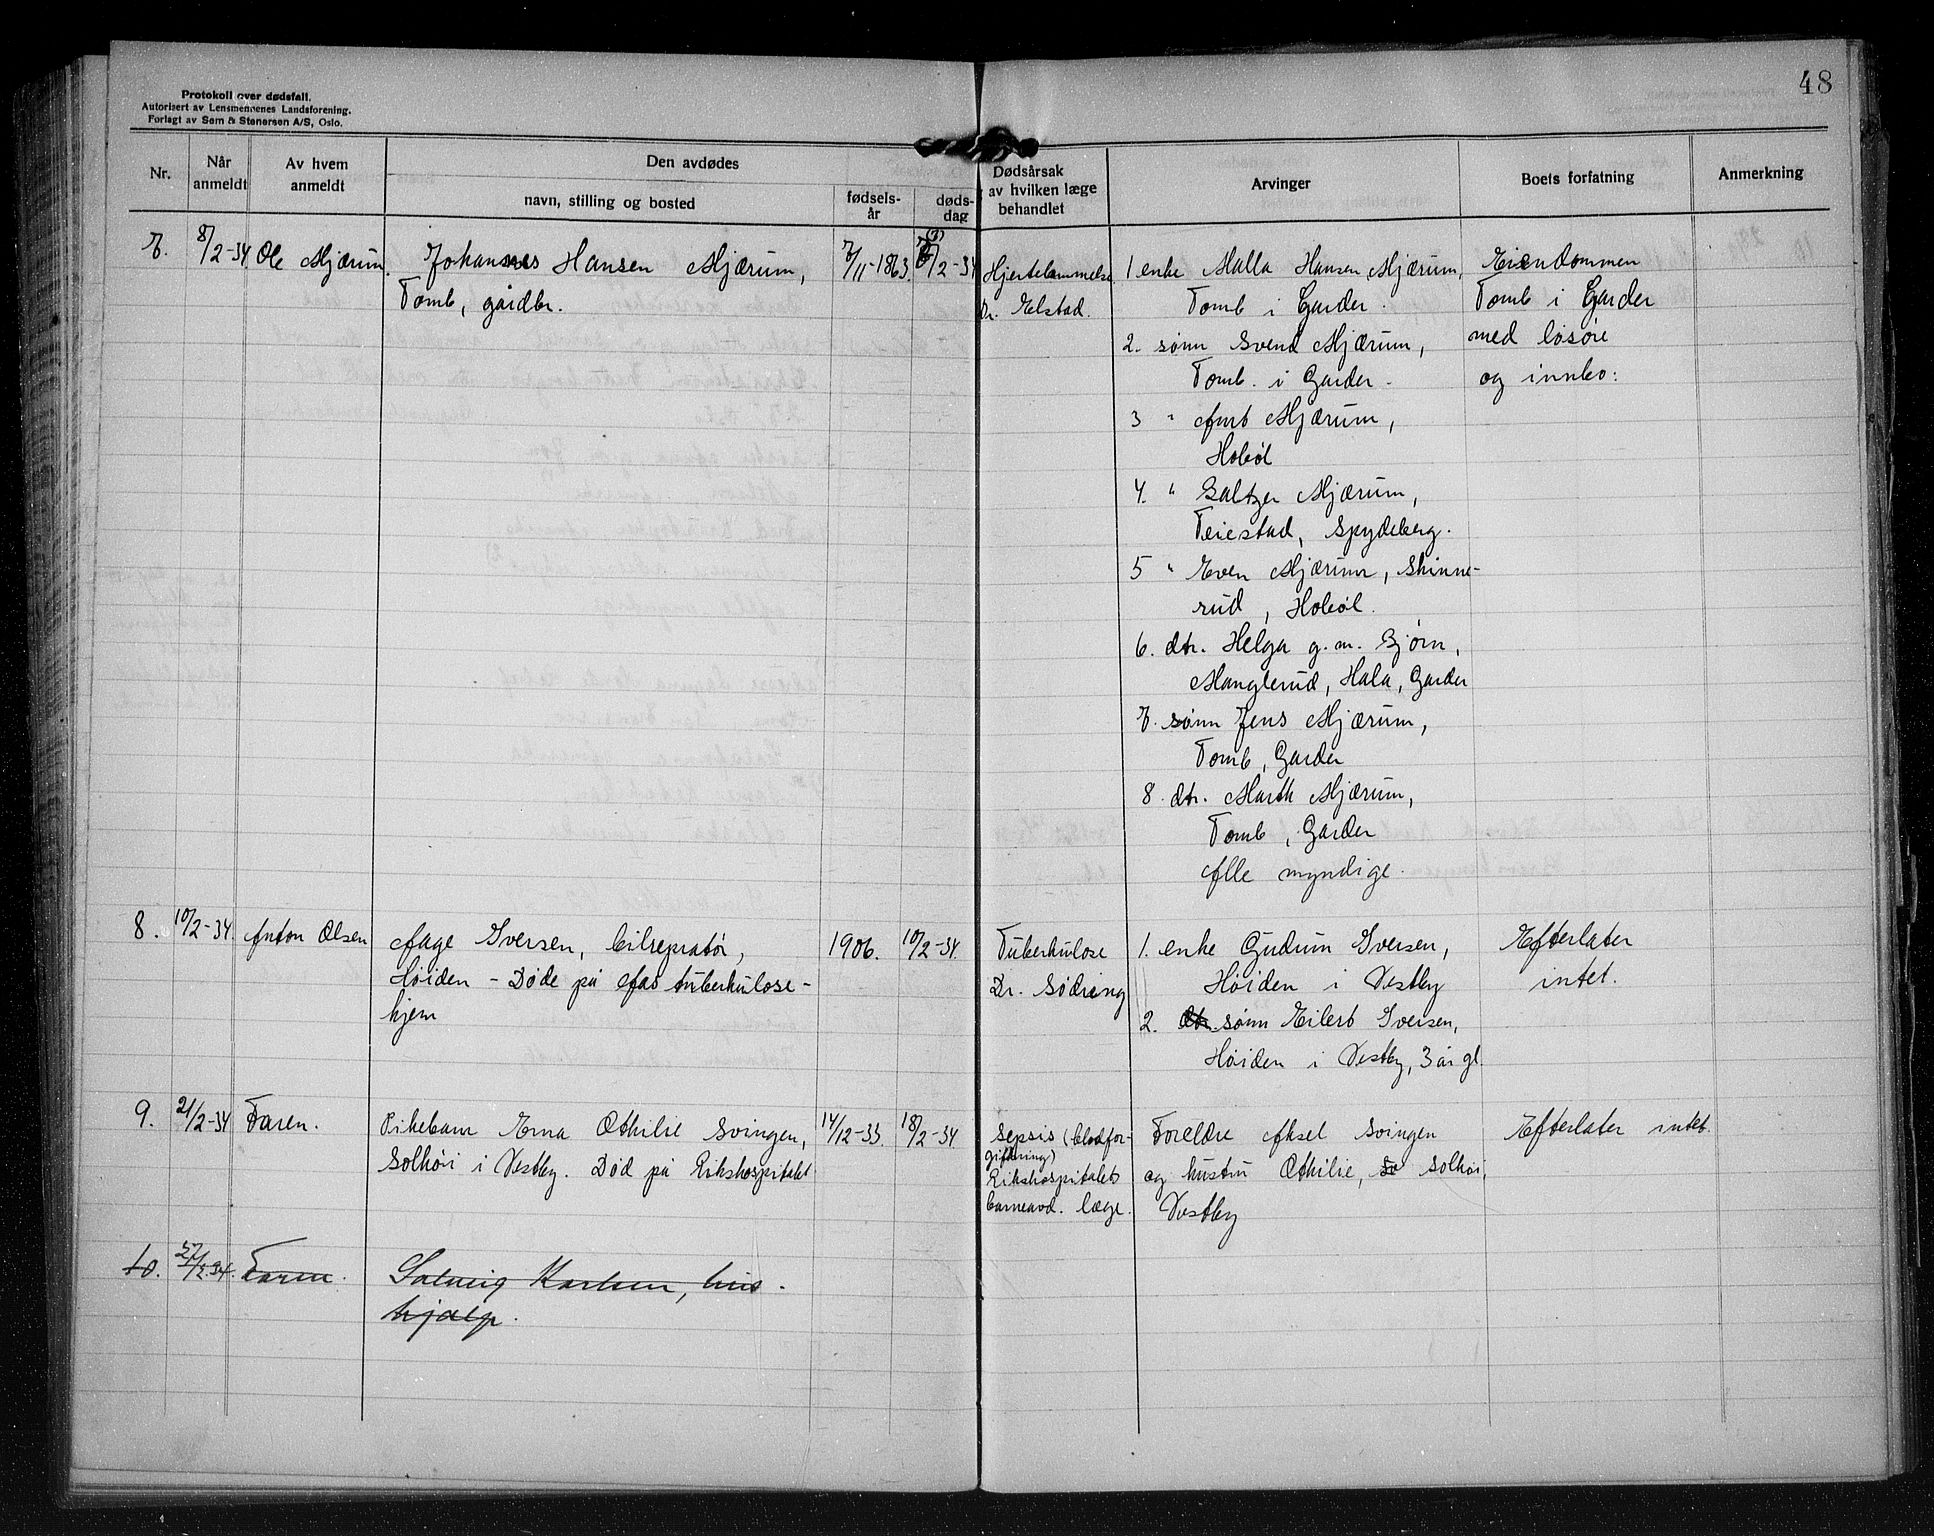 48
Protokoll over dødsfall.
Autorisert av Lensmennenes Landsforening.
Forlagt av Sem & Stenersen A/S, Oslo.
Nr.
Når anmeldt
Av hvem anmeldt
Den avdødes
navn, stilling og bosted
fødsels-år
døds-dag
Dødsårsak
av hvilken læge
behandlet
Arvinger
Boets forfatning
Anmerkning
7. 8/2-34 Ole Mjærum. Johannes Hansen Mjærum, 7/11-1863. /2-34
Tomb, gårdbr.
Hjertelammelse
Dr. Elstad.
1 enke Malla Hansen Mjærum,
Tomb i Garder.
2. sønn Svend Mjærum,
Tomb. i Garder.
3 " Mjærum,
Hobøl
4. " Baltzer Mjærum,
Teiestad, Spydeberg.
5 " Even Mjærum, Skinne-
rud, Hobøl.
6. dtr. Helga g.m. Bjørn,
Manglerud, Hala, Garder
7. sønn Jens Mjærum,
Tomb, Garder
8. dtr. Marth Mjærum,
Tomb, Garder
Alle myndige.
Eiendommen
Tomb i Garder
med løsøre
og innbo:
8. 10/2-34. Anton Olsen Aage Iversen, bilrepratør, 1906. 10/2-34.
Høiden - Døde på Aas tuberkulose-
hjem
Tuberkulose
Dr. Sødring
1. enke Gudrun Iversen,
Høiden i Vestby
2. dtr. sønn Eilert Iversen,
Høiden i Vestby, 3 år gl.
Efterlater
intet.
9. 21/2-34 Faren. Pikebarn Erna Othilie Svingen, 14/12-33. 18/2-34
Solhøi i Vestby. Død på Rikshospitalet
Sepsis (blodfor-
giftning)
Rikshospitalets
barneavd. læge.
Foreldre Aksel Svingen
og hustru Othilie, So Solhøi,
Vestby
Efterlater intet.
10. 27/2.34. Faren. Solveig Karlsen, hus-
hjælp.